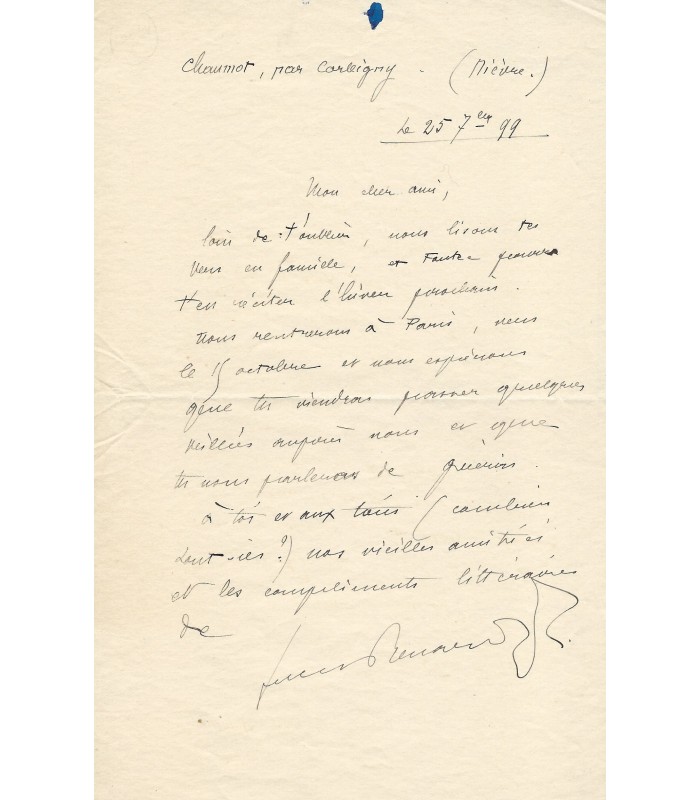 Chaumot, par Corbigny. (Nièvre.)
Le 25 7bre 99
Mon cher ami,
loin de t'oublier, nous lisons tes
vers en famille, et Fantec pourra
t'en réciter l'hiver prochain.
Nous rentrerons à Paris, vers
le 15 octobre et nous espérons
que tu viendras passer quelques
veillées auprès nous et que
tu nous parleras de Guérin.
à toi et aux tiens (combien
sont-ils ?) nos vieilles amitiés
et les compliments littéraires
de
Jules Renard